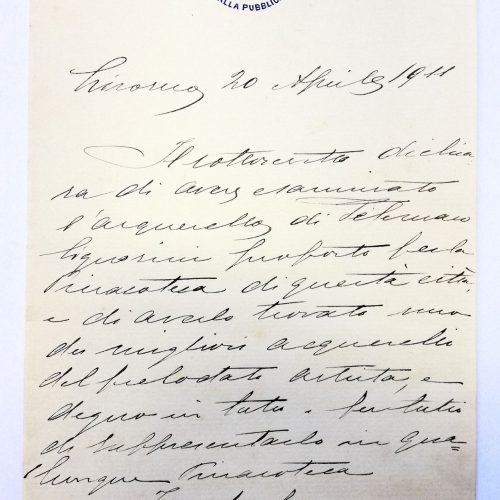 ALLA PUBBLIC
Livorno 20 Aprile 1911
Il sottoscritto dichia
ra di aver esaminato
l'acquerello di Telemaco
Signorini proposto per la
Pinacoteca di questa città,
e di averlo trovato uno
dei migliori acquerelli
del prelodato artista, e
degno in tutto e per tutto
di rappresentarlo in qua=
lunque Pinacoteca